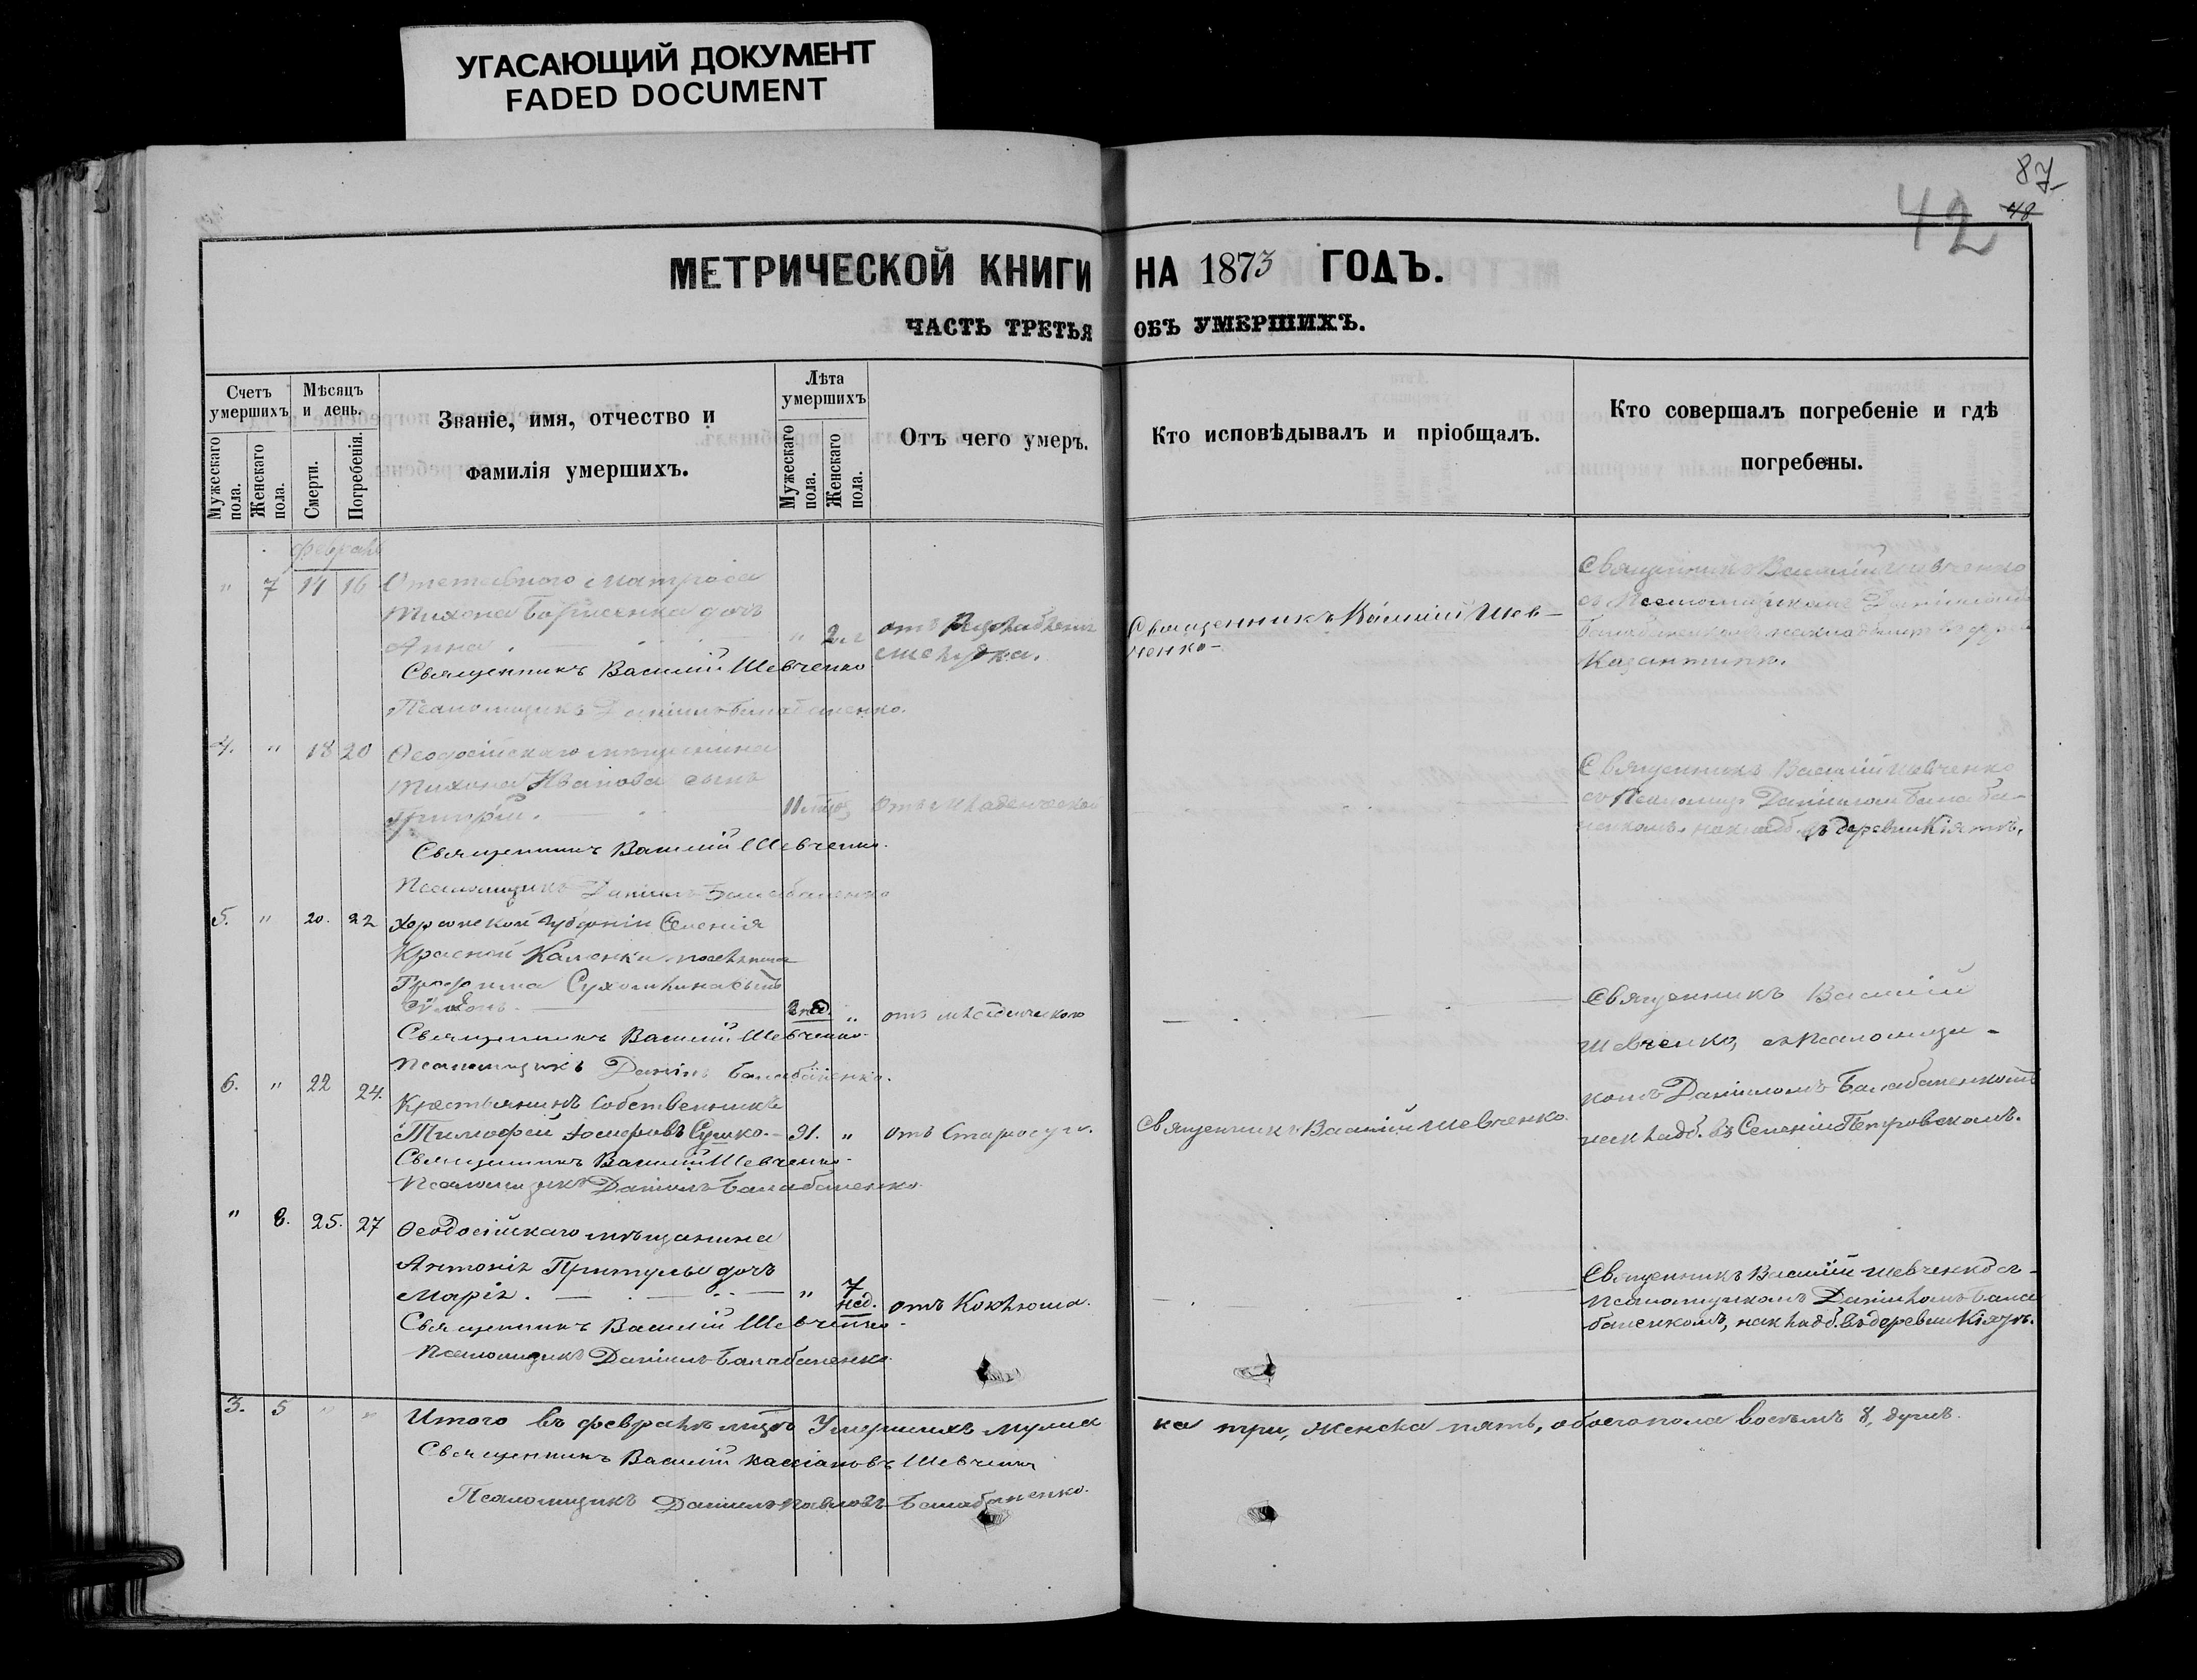 УГАСАЮЩИЙ ДОКУМЕНТ
FADED DOCUMENT
87
48
42
МЕТРИЧЕСКОЙ КНИГИ НА 1873 ГОДЪ.
ЧАСТЬ ТРЕТЬЯ ОБЪ УМЕРШИХЪ.
Счетъ умершихъ
Мужескаго пола.
Женскаго пола.
Мѣсяцъ и день.
Смерти.
Погребенія.
Званіе, имя, отчество и
фамилія умершихъ.
Лѣта умершихъ
Мужескаго пола.
Женскаго пола.
Отъ чего умеръ.
Кто исповѣдывалъ и пріобщалъ.
Кто совершалъ погребеніе и гдѣ
погребены.
Февраль
" 7 14 16 Отставного Матроса
Тихона Борисенка дочь
Анна. " 2
Священникъ Василій Шевченко
Псаломщикъ Даніилъ Балабаненко.
отъ
Священникъ Василій Шев-
ченко
Священникъ Василій Шевченко
съ Псаломщикомъ Даніиломъ
Казантипъ.
4. " 18 20 Ѳеодосійскаго мѣщанина
Тихона Иванова сынъ
Григорій. Отъ Младенческой
Священникъ Василій Шевченко.
Псаломщикъ Даніилъ Балабаненко
Священникъ Василій Шевченко
съ Псаломщ. Даніиломъ Балаба-
ненкомъ. на кладб. въ деревни
5. " 20. 22 Херсонской Губерніи Селенія
Красной Каменки поселянина
Сухомлина сынъ
2 нед. " отъ младенческой
Священникъ Василій Шевченко.
Псаломщикъ Даніилъ Балабаненко.
Священникъ Василій
Шевченко, съ Псаломщи-
комъ Даніиломъ Балабаненкомъ
на кладб. въ Селеніи Петровскомъ.
6. " 22 24. Крестьянинъ Собственникъ
Тимофей Сушко. 91. " отъ Старости. Священникъ Василій Шевченко.
Священникъ Василій Шевченко.
Псаломщикъ Даніилъ Балабаненко.
" 8. 25. 27 Ѳеодосійскаго мѣщанина
Антонія Притулы дочь
Марія. " 7 нед. отъ Коклюша.
Священникъ Василій Шевченко.
Псаломщикъ Даніилъ Балабаненко.
Священникъ Василій Шевченко съ
Псаломщикомъ Даніиломъ Балa
баненкомъ, на кладб. въ деревни
3. 5 " " Итого въ февралѣ мцѣ Умершихъ мужеска три, женска пять, обоего пола восемь 8, душъ.
Священникъ Василій Кассіановъ Шевченко
Псаломщикъ Даніилъ Павловъ Балабаненко.